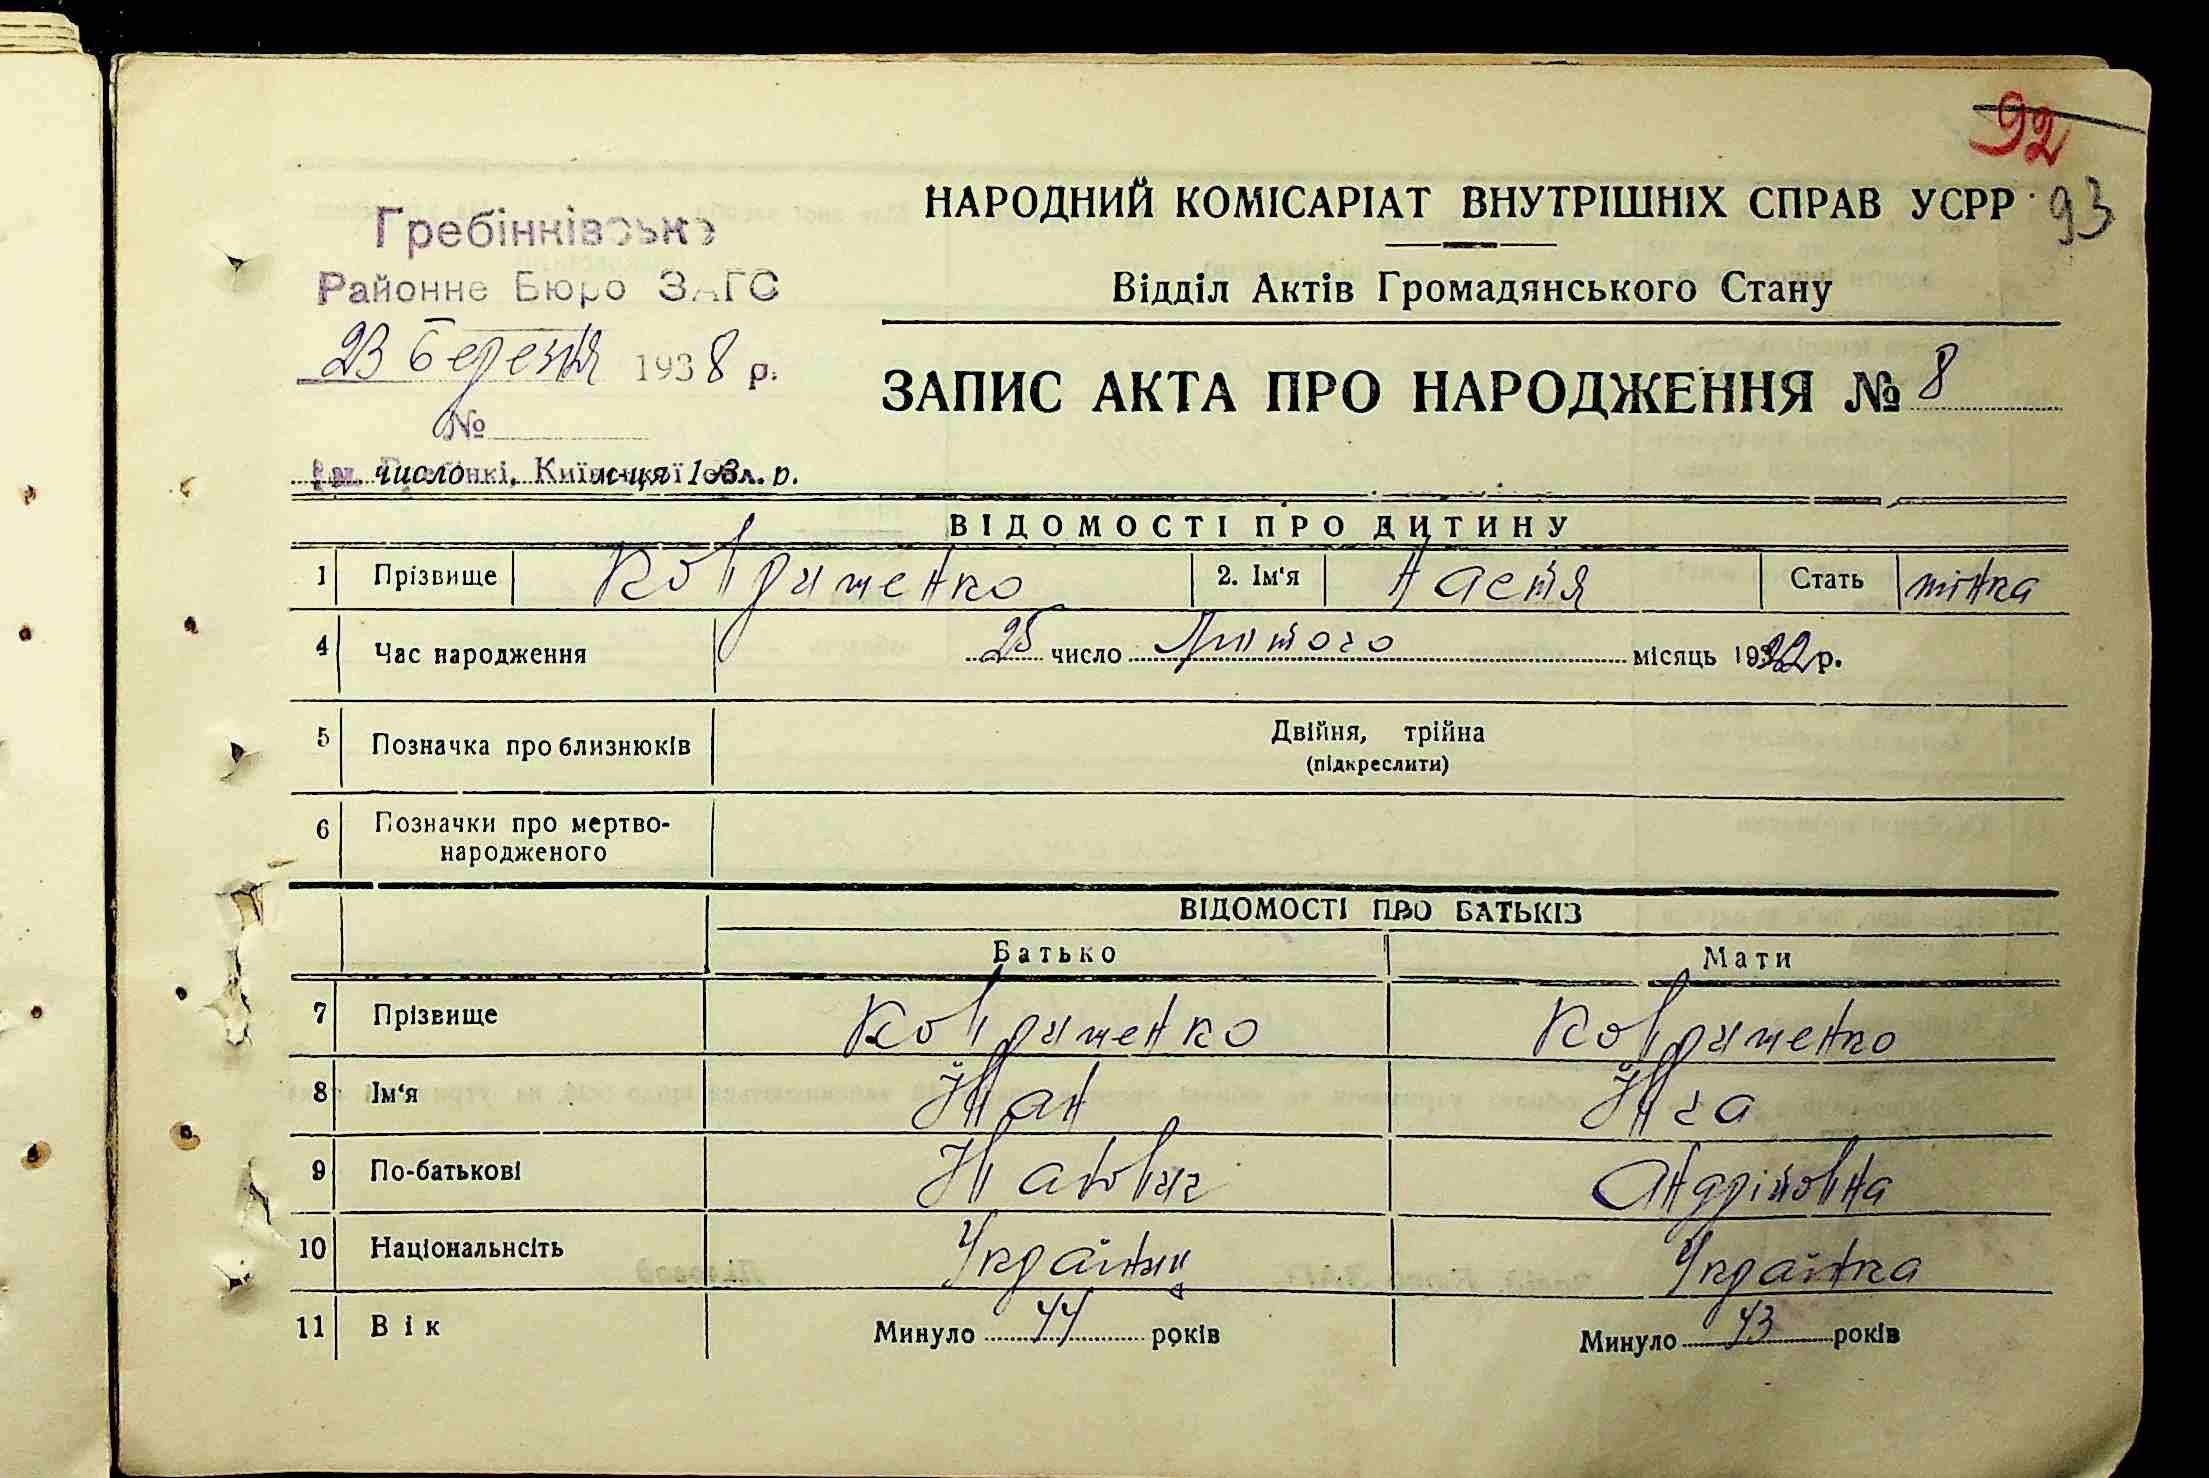 92
93
НАРОДНИЙ КОМІСАРІАТ ВНУТРІШНІХ СПРАВ УСРР
Відділ Актів Громадянського Стану
Гребінківське
Районне Бюро ЗАГС
23 березня 1938 р.
№
ЗАПИС АКТА ПРО НАРОДЖЕННЯ № 8
число р.
ВІДОМОСТІ ПРО ДИТИНУ
1 Прізвище Ковриженко 2. Ім‘я Настя Стать жінка
4 Час народження 25 число Лютого місяць 1922 р.
5 Позначка про близнюків Двійня, трійна
(підкреслити)
6 Позначки про мертво-
народженого
ВІДОМОСТІ ПРО БАТЬКІВ
Батько Мати
7 Прізвище Ковриженко Ковриженко
8 Ім‘я
9 По-батькові Андрійовна
10 Національнсіть Українец Українка
11 Вік Минуло 44 років Минуло 43 років